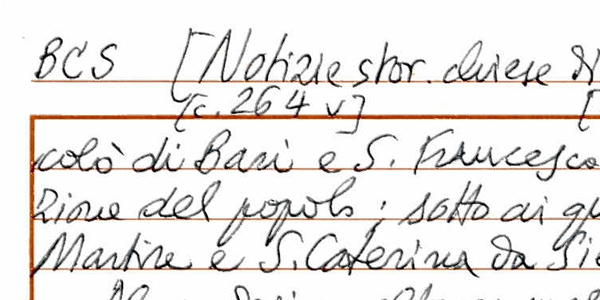 BCS [Notizie stor. chiese N
[c. 264 v] [
colò di Bari e S. Francesco
zione del popolo; sotto ai qu
Martire e S. Caterina da Sie